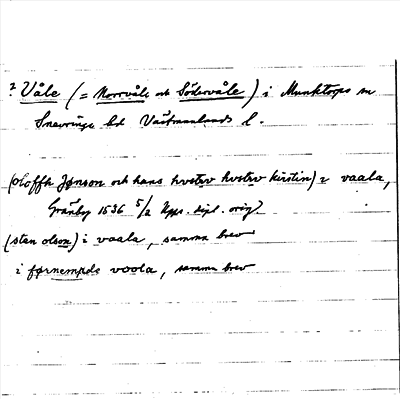 ? Våle (= Norrvåle och Södervåle) i Munktorps sn
Snevringe hd Västmanlands l.
(oloffh Jønson och hans hvstrv hvstrv kirstin) i vaala,
Gränby 1536 5/2 Upps. dipl. orig.
(sten olson) i vaala, samma brev
i førnempde voola, samma brev